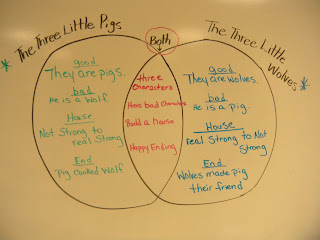 The Three Little Pigs
good
They are pigs.
bad
He is a Wolf
House
Not Strong to
real Strong
End
Pig Cooked Wolf
Both
three
Characters
Have bad Characters
Build a house
Happy Ending
The Three Little
Wolves
good
They are Wolves.
bad
He is a Pig.
House
real Strong to Not
Strong
End
Wolves made Pig
their friend